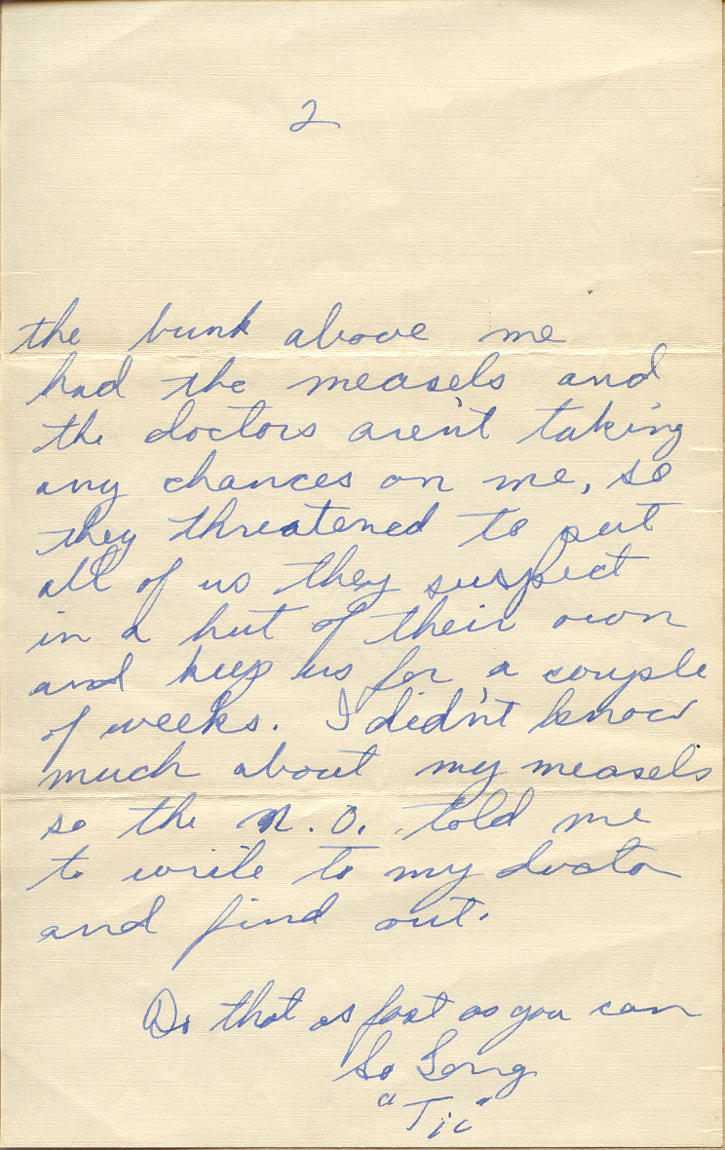 2
the bunk above me
had the measels and
the doctors aren't taking
any chances on me, so
they threatened to put
all of us they suspect
in a hut of their own
and keep us for a couple
of weeks. I didn't know
much about my measels
so the M.O. told me
to write to my doctor
and find out.
Do that as fast as you can
So Long
"Tic"